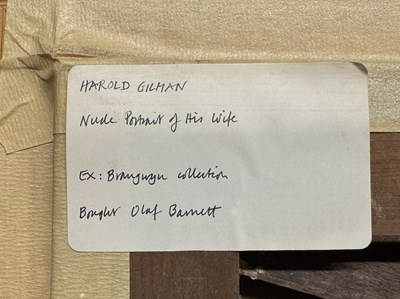 HAROLD GILMAN
Nude Portrait of His Wife
Ex: Brangwyn collection
Bought Olaf Barnett